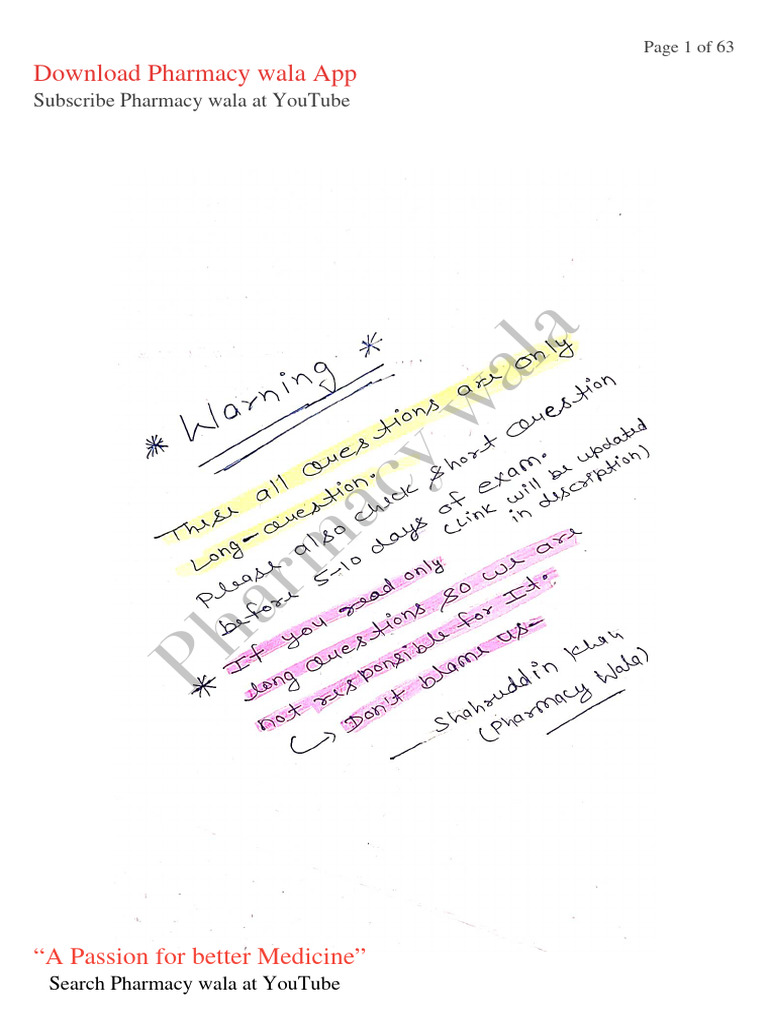 Page 1 of 63
Download Pharmacy wala App
Subscribe Pharmacy wala at YouTube
* Warning *
These all questions are only
Long-question.
Please also check short question
before 5-10 days of exam.
(Link will be updated
in description)
* If you read only
long questions so we are
not responsible for It.
↳ Don't blame us-
— Shahruddin Khan
(Pharmacy Wala)
Pharmacy wala
“A Passion for better Medicine”
Search Pharmacy wala at YouTube